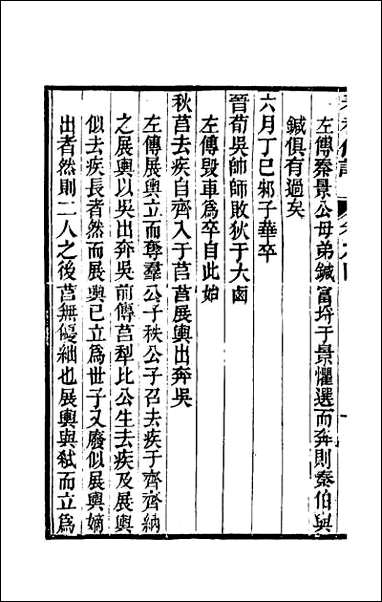 左傳秦景公母弟鍼富埒于景懼選而奔則秦伯與
鍼俱有過矣
六月丁巳邾子華卒
晉荀吳帥師敗狄于大鹵
左傳毀車爲卒自此始
秋莒去疾自齊入于莒莒展輿出奔吳
左傳展輿立而奪羣公子秩公子召去疾于齊齊納
之展輿以吳出奔吳前傳莒犁比公生去疾及展輿
似去疾長者然而展輿已立爲世子又廢似展輿嫡
出者然則二人之後莒無優絀也展輿與弒而立爲